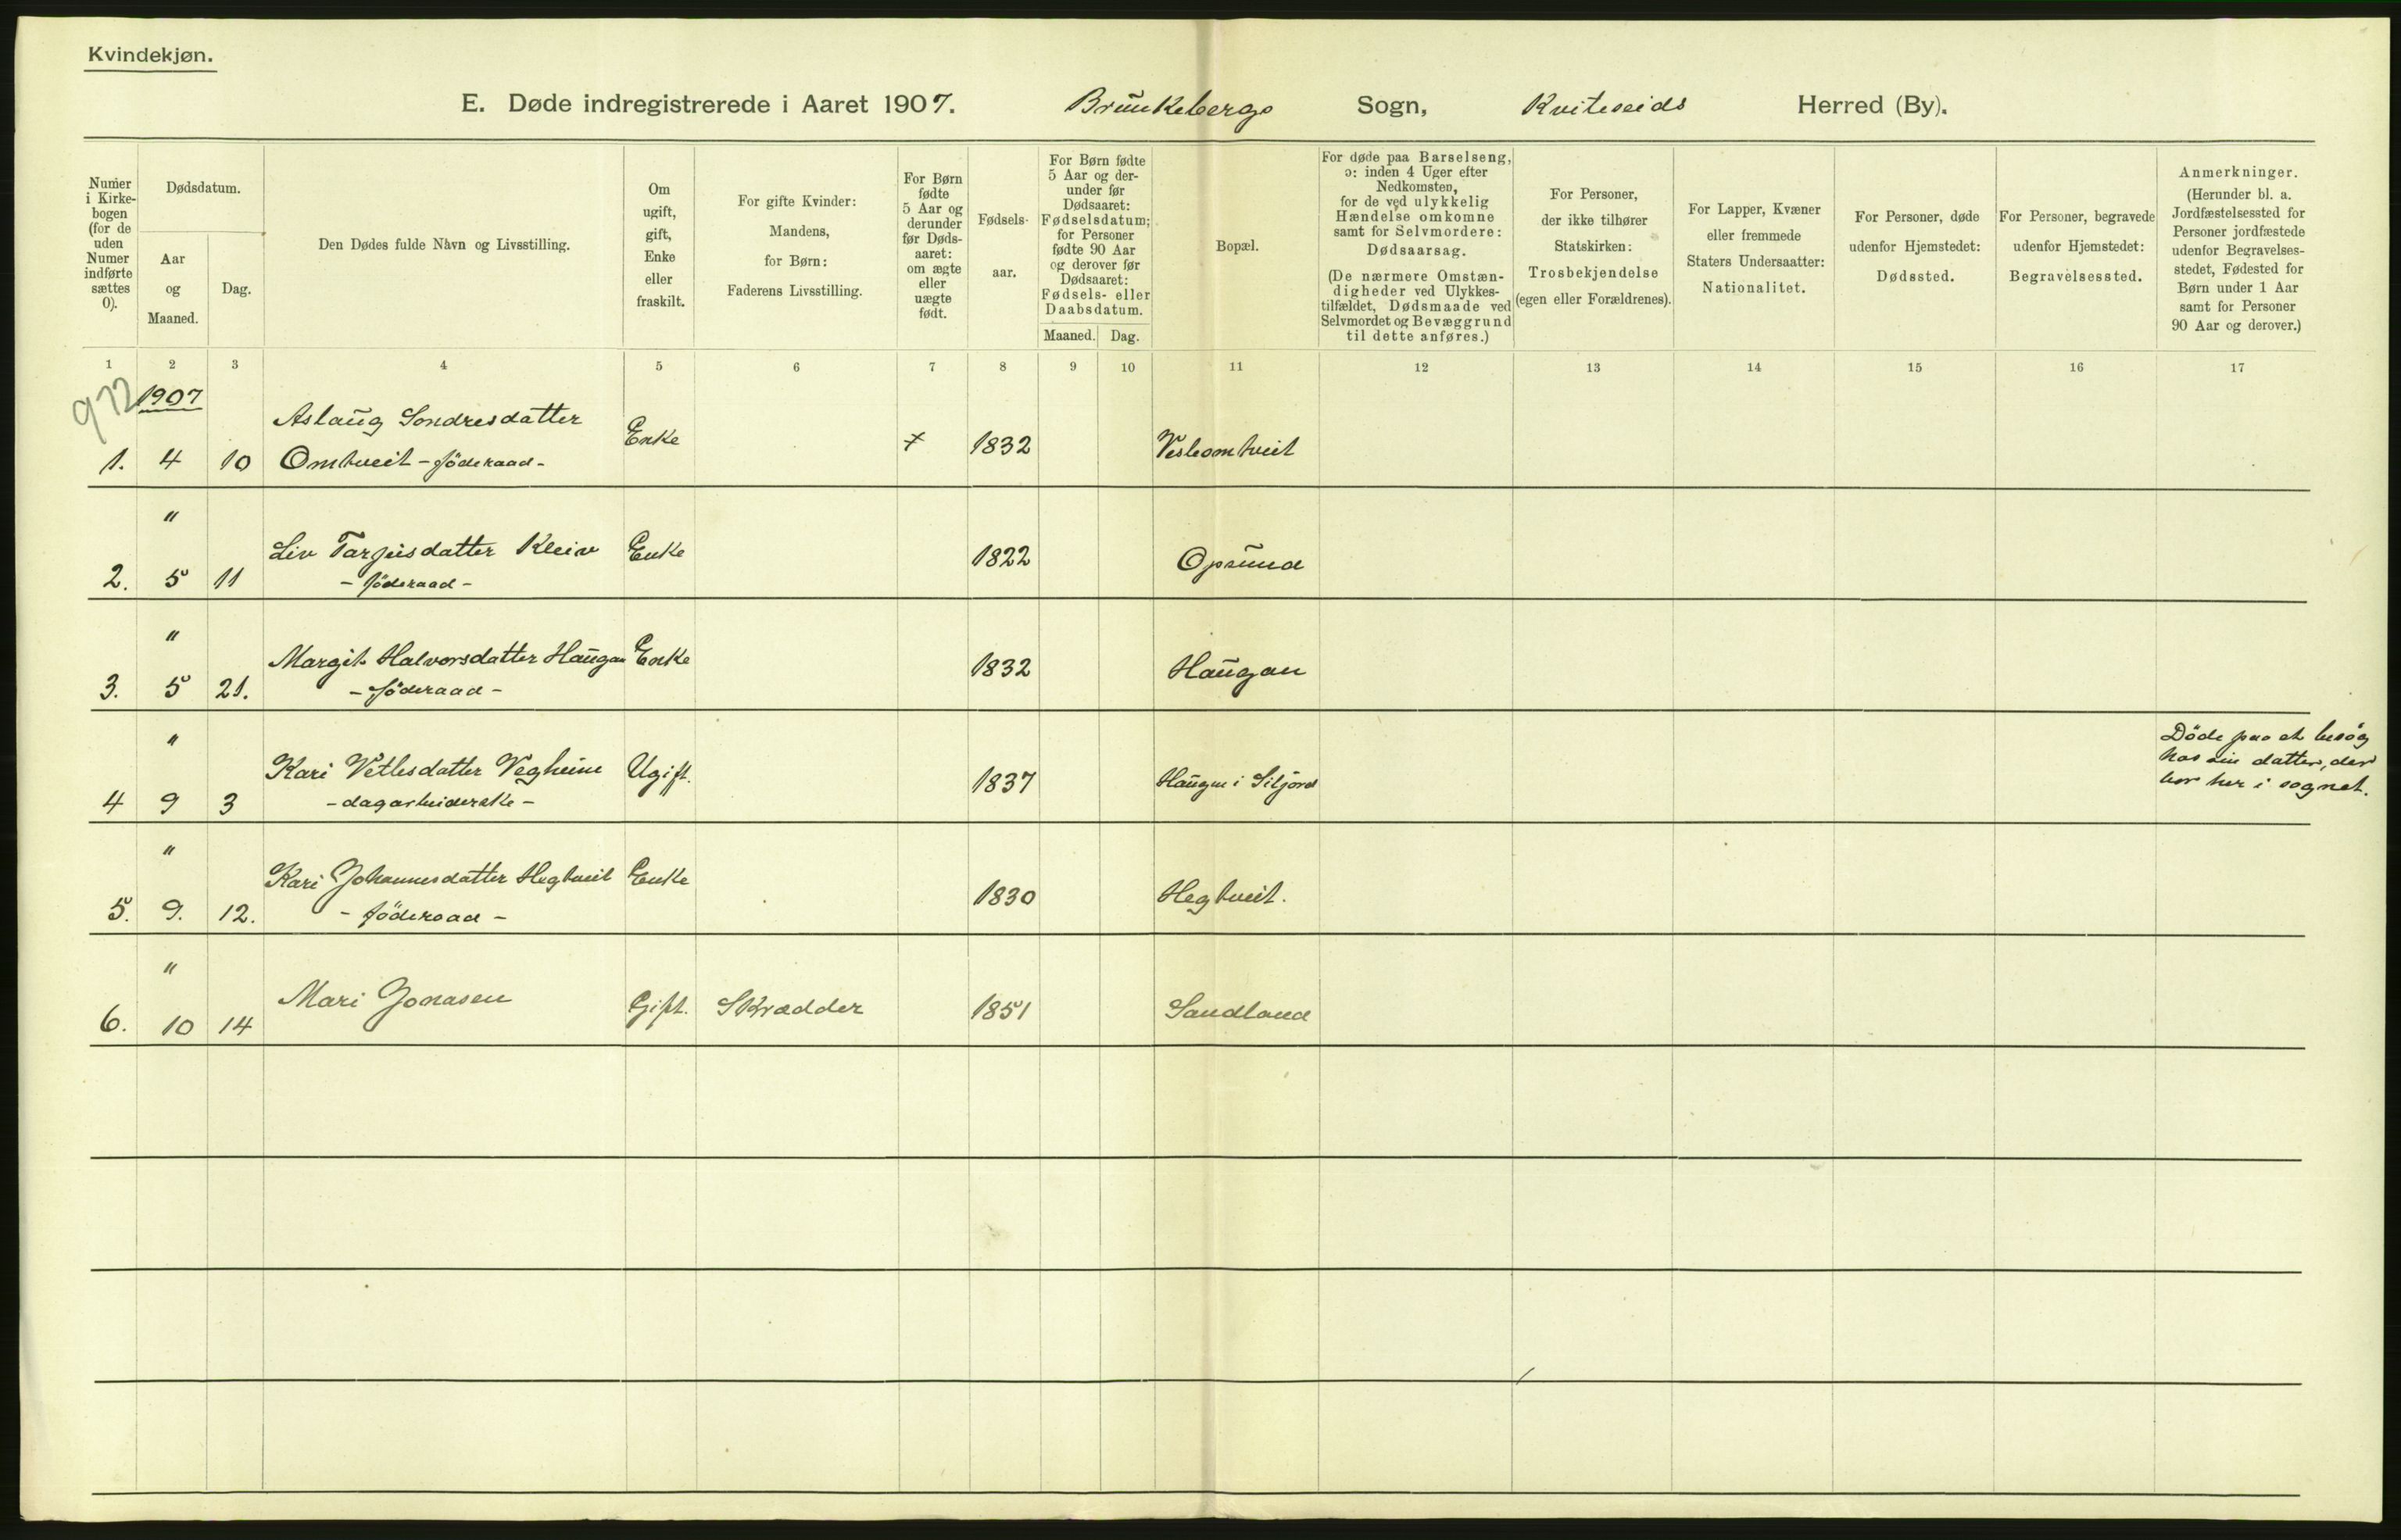 Kvindekjøn.
E. Døde indregistrerede i Aaret 1907. Brunkebergs Sogn, Kviteseids Herred (By).
Numer i Kirke-bogen (for de uden Numer indførte sættes 0).
Dødsdatum.
Aar og Maaned.
Dag.
Den Dødes fulde Navn og Livsstilling.
Om ugift, gift, Enke eller fraskilt.
For gifte Kvinder: Mandens, for Børn: Faderens Livsstilling.
For Børn fødte 5 Aar og derunder før Døds-aaret: om ægte eller uægte født.
Fødsels-aar.
For Børn fødte 5 Aar og der-under før Dødsaaret: Fødselsdatum; for Personer fødte 90 Aar og derover før Dødsaaret: Fødsels- eller Daabsdatum.
Maaned. Dag.
Bopæl.
For døde paa Barselseng, ɔ: inden 4 Uger efter Nedkomsten, for de ved ulykkelig Hændelse omkomne samt for Selvmordere: Dødsaarsag.
(De nærmere Omstæn-digheder ved Ulykkes-tilfældet, Dødsmaade ved Selvmordet og Bevæggrund til dette anføres.)
For Personer, der ikke tilhører Statskirken: Trosbekjendelse (egen eller Forældrenes).
For Lapper, Kvæner eller fremmede Staters Undersaatter: Nationalitet.
For Personer, døde udenfor Hjemstedet: Dødssted.
For Personer, begravede udenfor Hjemstedet: Begravelsessted.
Anmerkninger.
(Herunder bl. a. Jordfæstelsessted for Personer jordfæstede udenfor Begravelses-stedet, Fødested for Børn under 1 Aar samt for Personer 90 Aar og derover.)
1 2 3 4 5 6 7 8 9 10 11 12 13 14 15 16 17
972
1907
Aslaug Sondresdatter
1. 4 10 Omtveit - föderaad - Enke 1832 Vesleomtveit
"
Liv Targeisdatter Kleiv Enke 1822 Opsund
2. 5 11 - föderaad -
"
Margit Halvorsdatter Haugan Enke 1832 Haugan
3. 5 21. - föderaad -
"
Kari Vetlesdatter Vegheim Ugift. 1837 Haugen i Siljord
4 9 3 - dagarbeiderske -
Döde paa et besög
hos sin datter, der
bor her i sognet.
"
Kari Johannesdatter Hegtveit Enke 1830 Hegtveit.
5. 9. 12. - föderaad -
"
Mari Jonasen Gift. Skrædder 1851 Sandland
6. 10 14